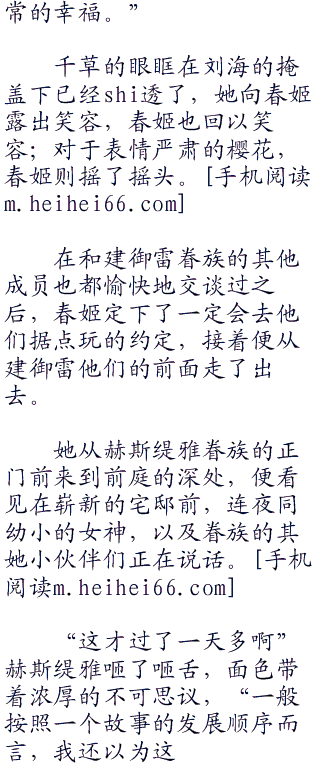 常的幸福。”
千草的眼眶在刘海的掩
盖下已经shi透了，她向春姬
露出笑容，春姬也回以笑
容；对于表情严肃的樱花，
春姬则摇了摇头。[手机阅读
m.heihei66.com]
在和建御雷眷族的其他
成员也都愉快地交谈过之
后，春姬定下了一定会去他
们据点玩的约定，接着便从
建御雷他们的前面走了出
去。
她从赫斯缇雅眷族的正
门前来到前庭的深处，便看
见在崭新的宅邸前，连夜同
幼小的女神，以及眷族的其
她小伙伴们正在说话。[手机
阅读m.heihei66.com]
“这才过了一天多啊”
赫斯缇雅咂了咂舌，面色带
着浓厚的不可思议，“一般
按照一个故事的发展顺序而
言，我还以为这